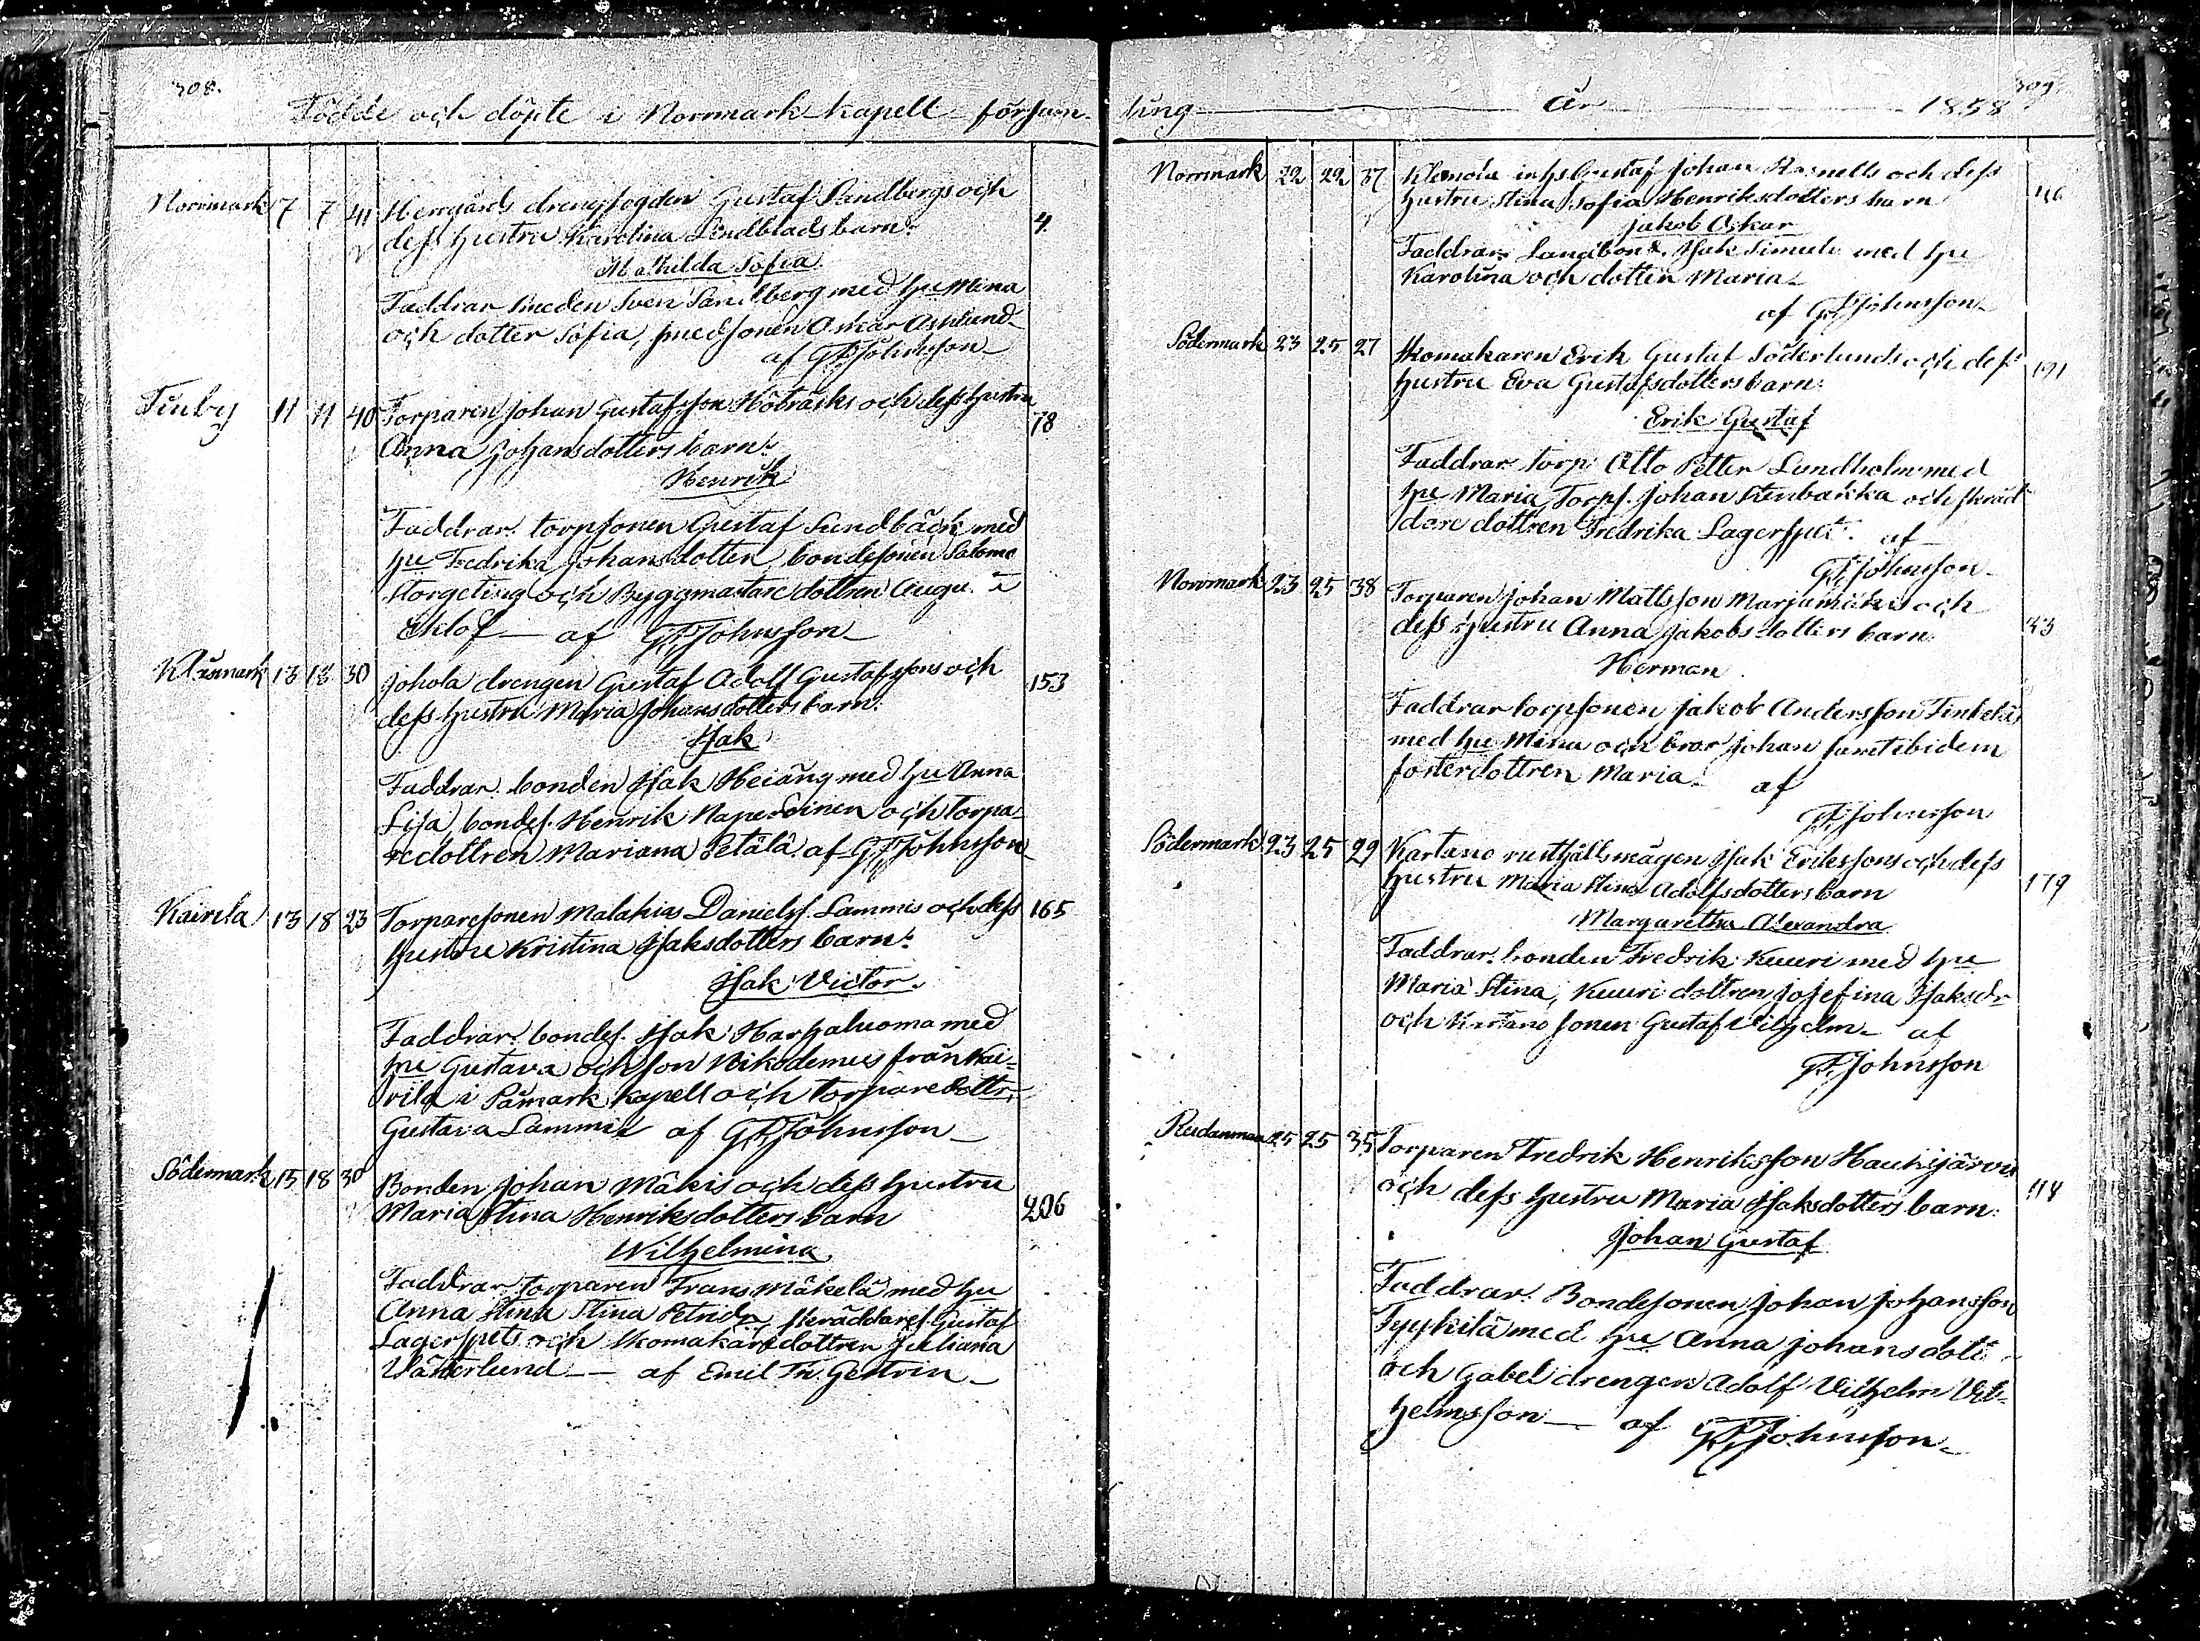 308.
Födde och döpte i Norrmark kapell försam-
Norrmark 7 7 41 Herrgårds drengfogden Gustaf Sandbergs och
dess hustru Karolina Lindblads barn: 4
Mathilda Sofia
Faddrar smeden Sven Sandberg med hu Mina
och dotter Sofia, smedsonen Oskar Asklund
af GFJohnsson
Finby 11 11 40 Torparen Johan Gustafsson Höträsks och dess hustru 78
Anna Johansdotters barn:
Henrik
Faddrar: torpsonen Gustaf Sundbäck med
hu Fredrika Johansdotter, bondesonen Salomo
Storgeting och Byggmästare dottren Augu.
Eklöf af GFJohnsson
13 18 30 Johola drengen Gustaf Adolf Gustafssons och 153
dess hustru Maria Johansdotters barn:
Isak
Faddrar: bonden Isak Heiäng med hu Anna
Lisa, bondes. Henrik och torpa-
redottren Mariana Petälä af GFJohnsson
Kairila 13 18 23 Torparesonen Malakias Danielss. Lammis och dess 165
hustru Kristina Isaksdotters barn:
Isak Victor.
Faddrar: bondes. Isak Harhaluoma med
hu Gustava och son Nikodemus från Kai-
rila i Påmark kapell och torparedottr.
Gustava Lammi af GFJohnsson
Södermark 15 18 30 Bonden Johan Mäkis och dess hustru
Maria Stina Henriksdotters barn 206
Wilhelmina
Faddrar: torparen Frans Mäkelä med hu
Anna Stina Stina Petridr, skräddares. Gustaf
Lagerspets och skomakaredottren Juliana
Wätterlund af Emil Th. Gestrin
309
ling År 1858
Norrmark 22 22 37 inhs Gustaf Johan och dess
hustru Stina Sofia Henriksdotters barn 46
Jakob Oskar
Faddrar: Landbon. Isak Simula med hu
Karolina och dotten Maria
af GFJohnsson
Södermark 23 25 27 Skomakaren Erik Gustaf Söderlunds och dess
hustru Eva Gustafsdotters barn: 191
Erik Gustaf
Faddrar torp: Otto Petter Lundholm med
hu Maria, Torps. Johan Stenbakka och skräd
dare dottren Fredrika Lagerspet. af
GFJohnsson
Norrmark 23 25 38 Torparen Johan Matsson Marjamäkis och
dess hustru Anna Jakobsdotters barn: 33
Herman
Faddrar torpsonen Jakob Andersson
med hu Mina och bror Johan samt ibidem
fosterdottren Maria. af
GFJohnsson
Södermark 23 25 29 Kartano rusthållsmågen Isak Erikssons och dess
hustru Maria Stina Adolfsdotters barn 179
Margaretha Alexandra
Faddrar: bonden Fredrik Kuuri med hu
Maria Stina, Kuuri dottren Josefina Isaksdr
och Kartano sonen Gustaf Vilhelm af
GFJohnsson
Rudanmaa 25 25 35 Torparen Fredrik Henriksson Haukijärvis
och dess hustru Maria Isaksdotters barn: 118
Johan Gustaf
Faddrar: Bondesonen Johan Johansson
Tyykilä med hu Anna Johansdott
och Gabel drengen Adolf Vilhelm Vil-
helmsson af GFJohnsson